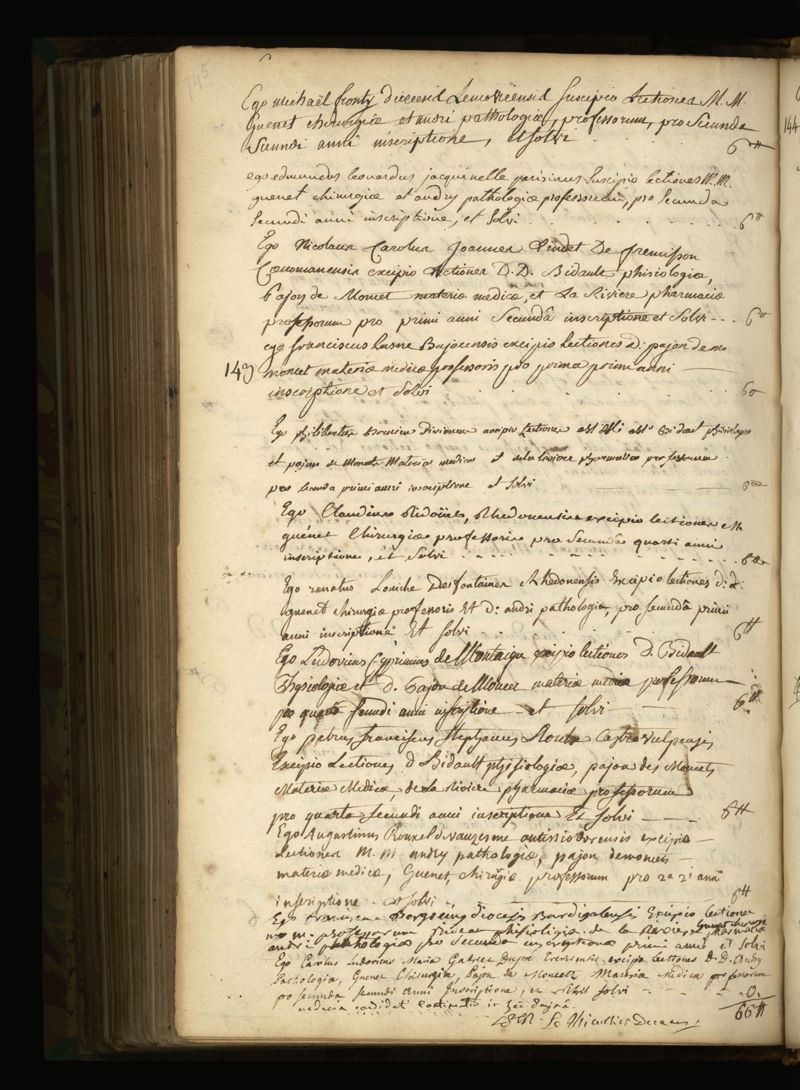 145
Ego Michaël fronty diœcesis Lemovicensis suscipio lectiones M. M.
Guenet chirurgiæ et andri pathologiæ, professorum, pro secunda
secundi anni inscriptione, et solvi . . . 6ᵗᵗ
ego edmundus leonardus jacquinelle parisinus suscipio lectiones M. M.
guenet chirurgiæ et andry pathologiæ professorum, pro secunda
secundi anni inscriptione, et solvi . . . . . . . . 6ᵗᵗ
Ego Nicolaus Carolus Joannes Pindet De fremisson
Cœnomanensis excipio lectiones D. D. Bidault phisiologiæ,
Pajon de Moncet materiæ medicæ, et La Riviere pharmaciæ
professorum pro primi anni secundâ inscriptione et solvi . . . 6ᵗᵗ
ego franciscus lasne Bajocensis excipio lectiones d. pajon de mo
moncet materiæ medicæ professoris pro prima primi anni
149
inscriptione et solvi . . . . . . . . 6ᵗᵗ
Ego philibertus Divionensis excipio lectiones Bidault phisiologiæ
et pajon de Moncets Materiæ medicæ et de la riviere pharmaciæ professorum
pro secunda primi anni inscriptione et solvi 6ᵗᵗ
Ego Claudius Ridoüel, Rhedonensis excipio lectiones m
guénet Chirurgiæ professoris pro secundâ quarti anni
inscriptione, et solvi . . . . . . . . 6ᵗᵗ
Ego renatus Louiche Desfontaines Rhedonensis Excipio lectiones d: d:
guenet chirurgiæ professoris Et D: andri pathologiæ, pro secundâ primi
anni inscriptione Et solvi . . . . . . . . 6ᵗᵗ
Ego Ludovicus Cyprianus de Montaigu excipio lectiones D. Bidault
Physiologiæ et d. Pajon de Moncet materiæ medicæ professorum
pro quarta secundi anni inscriptione et solvi 6ᵗᵗ
Ego petrus franciscus stephanus Roux Castrovulpensis
Excipio Lectiones d Bidault physiologiæ, pajon des Moncets
Materiæ Medicæ de la riviere pharmaciæ professorum
pro quarta secundi anni inscriptione Et solvi 6ᵗᵗ
Ego Augustinus Rouxel de vauzesme autissiodorensis excipio
Lectiones M. M andry pathologiæ, pajon demoncets
materiæ medicæ, Guenet, chirurgiæ professorum pro 2a 2i anni
inscriptione et solvi 6ᵗᵗ
Ego franciscus diocesis Burdigalensis Excipio lectiones
m m. professorum phisiologiæ de la Riviere pharmaciæ
andri pathologiæ pro secunda inscriptione primi anni et solvi
Ego Carolus Ludovicus Maria Gabriel Dupré excipio lectiones D. D. Andry
Pathologiæ, Guenet Chirurgiæ, Pajon de Moncets Materiæ Medicæ professorum
pro secunda secundi anni Inscriptione, et nihil solvi . . . 0.
66ᵗᵗ
Decanus